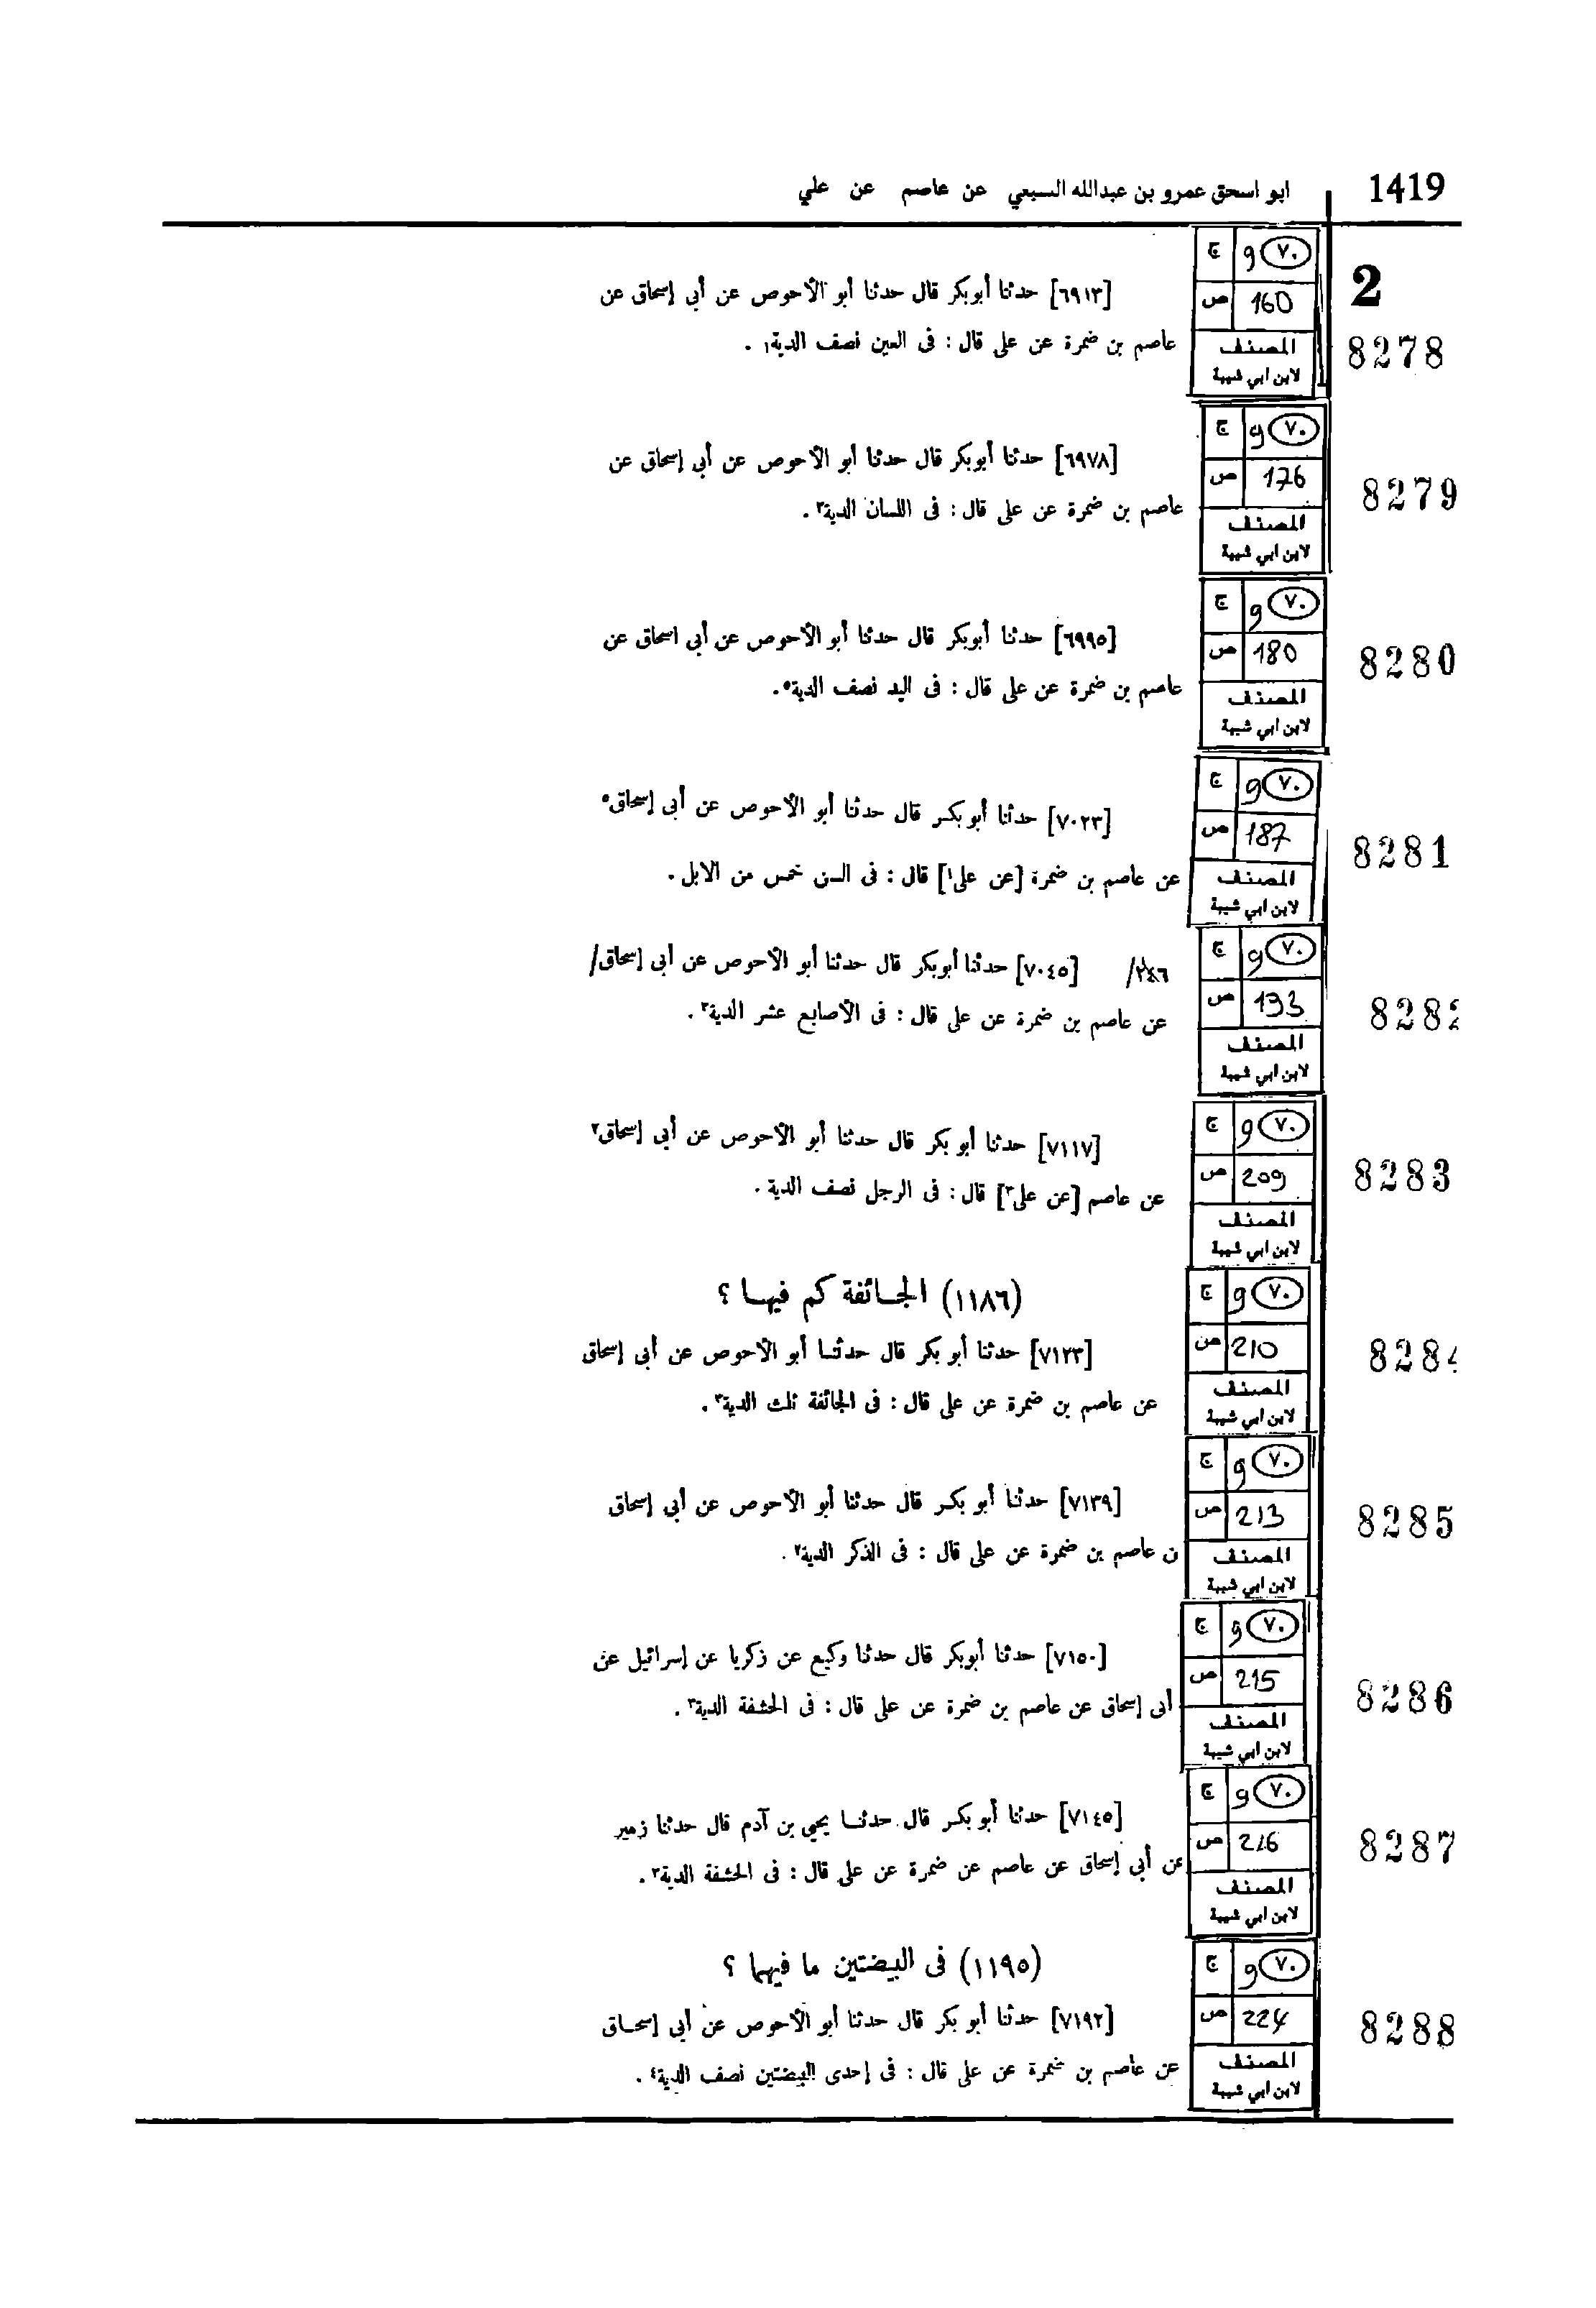 1419 ابو اسحق عمرو بن عبدالله السبعي عن عاصم عن علي
2
8278
ج ٧٠ و
ص 160
المصنف
لابن ابي شيبة
[٦٩١٣] حدثنا أبوبكر قال حدثنا أبو الأحوص عن أبى إسحاق عن
عاصم بن ضمرة عن على قال : فى العين نصف الدية١ .
8279
ج ٧٠ و
ص 176
المصنف
لابن ابي شيبة
[٦٩٧٨] حدثنا أبوبكر قال حدثنا أبو الأحوص عن أبى إسحاق عن
عاصم بن ضمرة عن على قال : فى اللسان الدية٣ .
8280
ج ٧٠ و
ص 180
المصنف
لابن ابي شيبة
[٦٩٩٥] حدثنا أبوبكر قال حدثنا أبو الأحوص عن أبى اسحاق عن
عاصم بن ضمرة عن على قال : فى اليد نصف الدية٥.
8281
ج ٧٠ و
ص 187
المصنف
لابن ابي شيبة
[٧٠٢٣] حدثنا أبو بكر قال حدثنا أبو الأحوص عن أبى إسحاق٥
عن عاصم بن ضمرة [عن على١] قال : فى السن خمس من الابل .
8282
ج ٧٠ و
ص 193
المصنف
لابن ابي شيبة
٢٤٦/ [٧٠٤٥] حدثنا أبوبكر قال حدثنا أبو الأحوص عن أبى إسحاق/
عن عاصم بن ضمرة عن على قال : فى الأصابع عشر الدية٣ .
8283
ج ٧٠ و
ص 209
المصنف
لابن ابي شيبة
[٧١١٧] حدثنا أبو بكر قال حدثنا أبو الأحوص عن أبى إسحاق٢
عن عاصم [عن على٣] قال : فى الرجل نصف الدية .
8284
ج ٧٠ و
ص 210
المصنف
لابن ابي شيبة
(١١٨٦) الجائفة كم فيها ؟
[٧١٢٣] حدثنا أبو بكر قال حدثنا أبو الأحوص عن أبى إسحاق
عن عاصم بن ضمرة عن على قال : فى الجائفة ثلث الدية٣ .
8285
ج ٧٠ و
ص 213
المصنف
لابن ابي شيبة
[٧١٣٩] حدثنا أبو بكر قال حدثنا أبو الأحوص عن أبى إسحاق
ن عاصم بن ضمرة عن على قال : فى الذكر الدية٢ .
8286
ج ٧٠ و
ص 215
المصنف
لابن ابي شيبة
[٧١٥٠] حدثنا أبوبكر قال حدثنا وكيع عن زكريا عن إسرائيل عن
أبى إسحاق عن عاصم بن ضمرة عن على قال : فى الحشفة الدية٣ .
8287
ج ٧٠ و
ص 216
المصنف
لابن ابي شيبة
[٧١٤٥] حدثنا أبو بكر قال حدثنا يحيى بن آدم قال حدثنا زهير
عن أبى إسحاق عن عاصم عن ضمرة عن على قال : فى الحشفة الدية٢ .
8288
ج ٧٠ و
ص 224
المصنف
لابن ابي شيبة
(١١٩٥) فى البيضتين ما فيهما ؟
[٧١٩٢] حدثنا أبو بكر قال حدثنا أبو الأحوص عن أبى إسحاق
عن عاصم بن ضمرة عن على قال : فى إحدى البيضتين نصف الدية٤ .